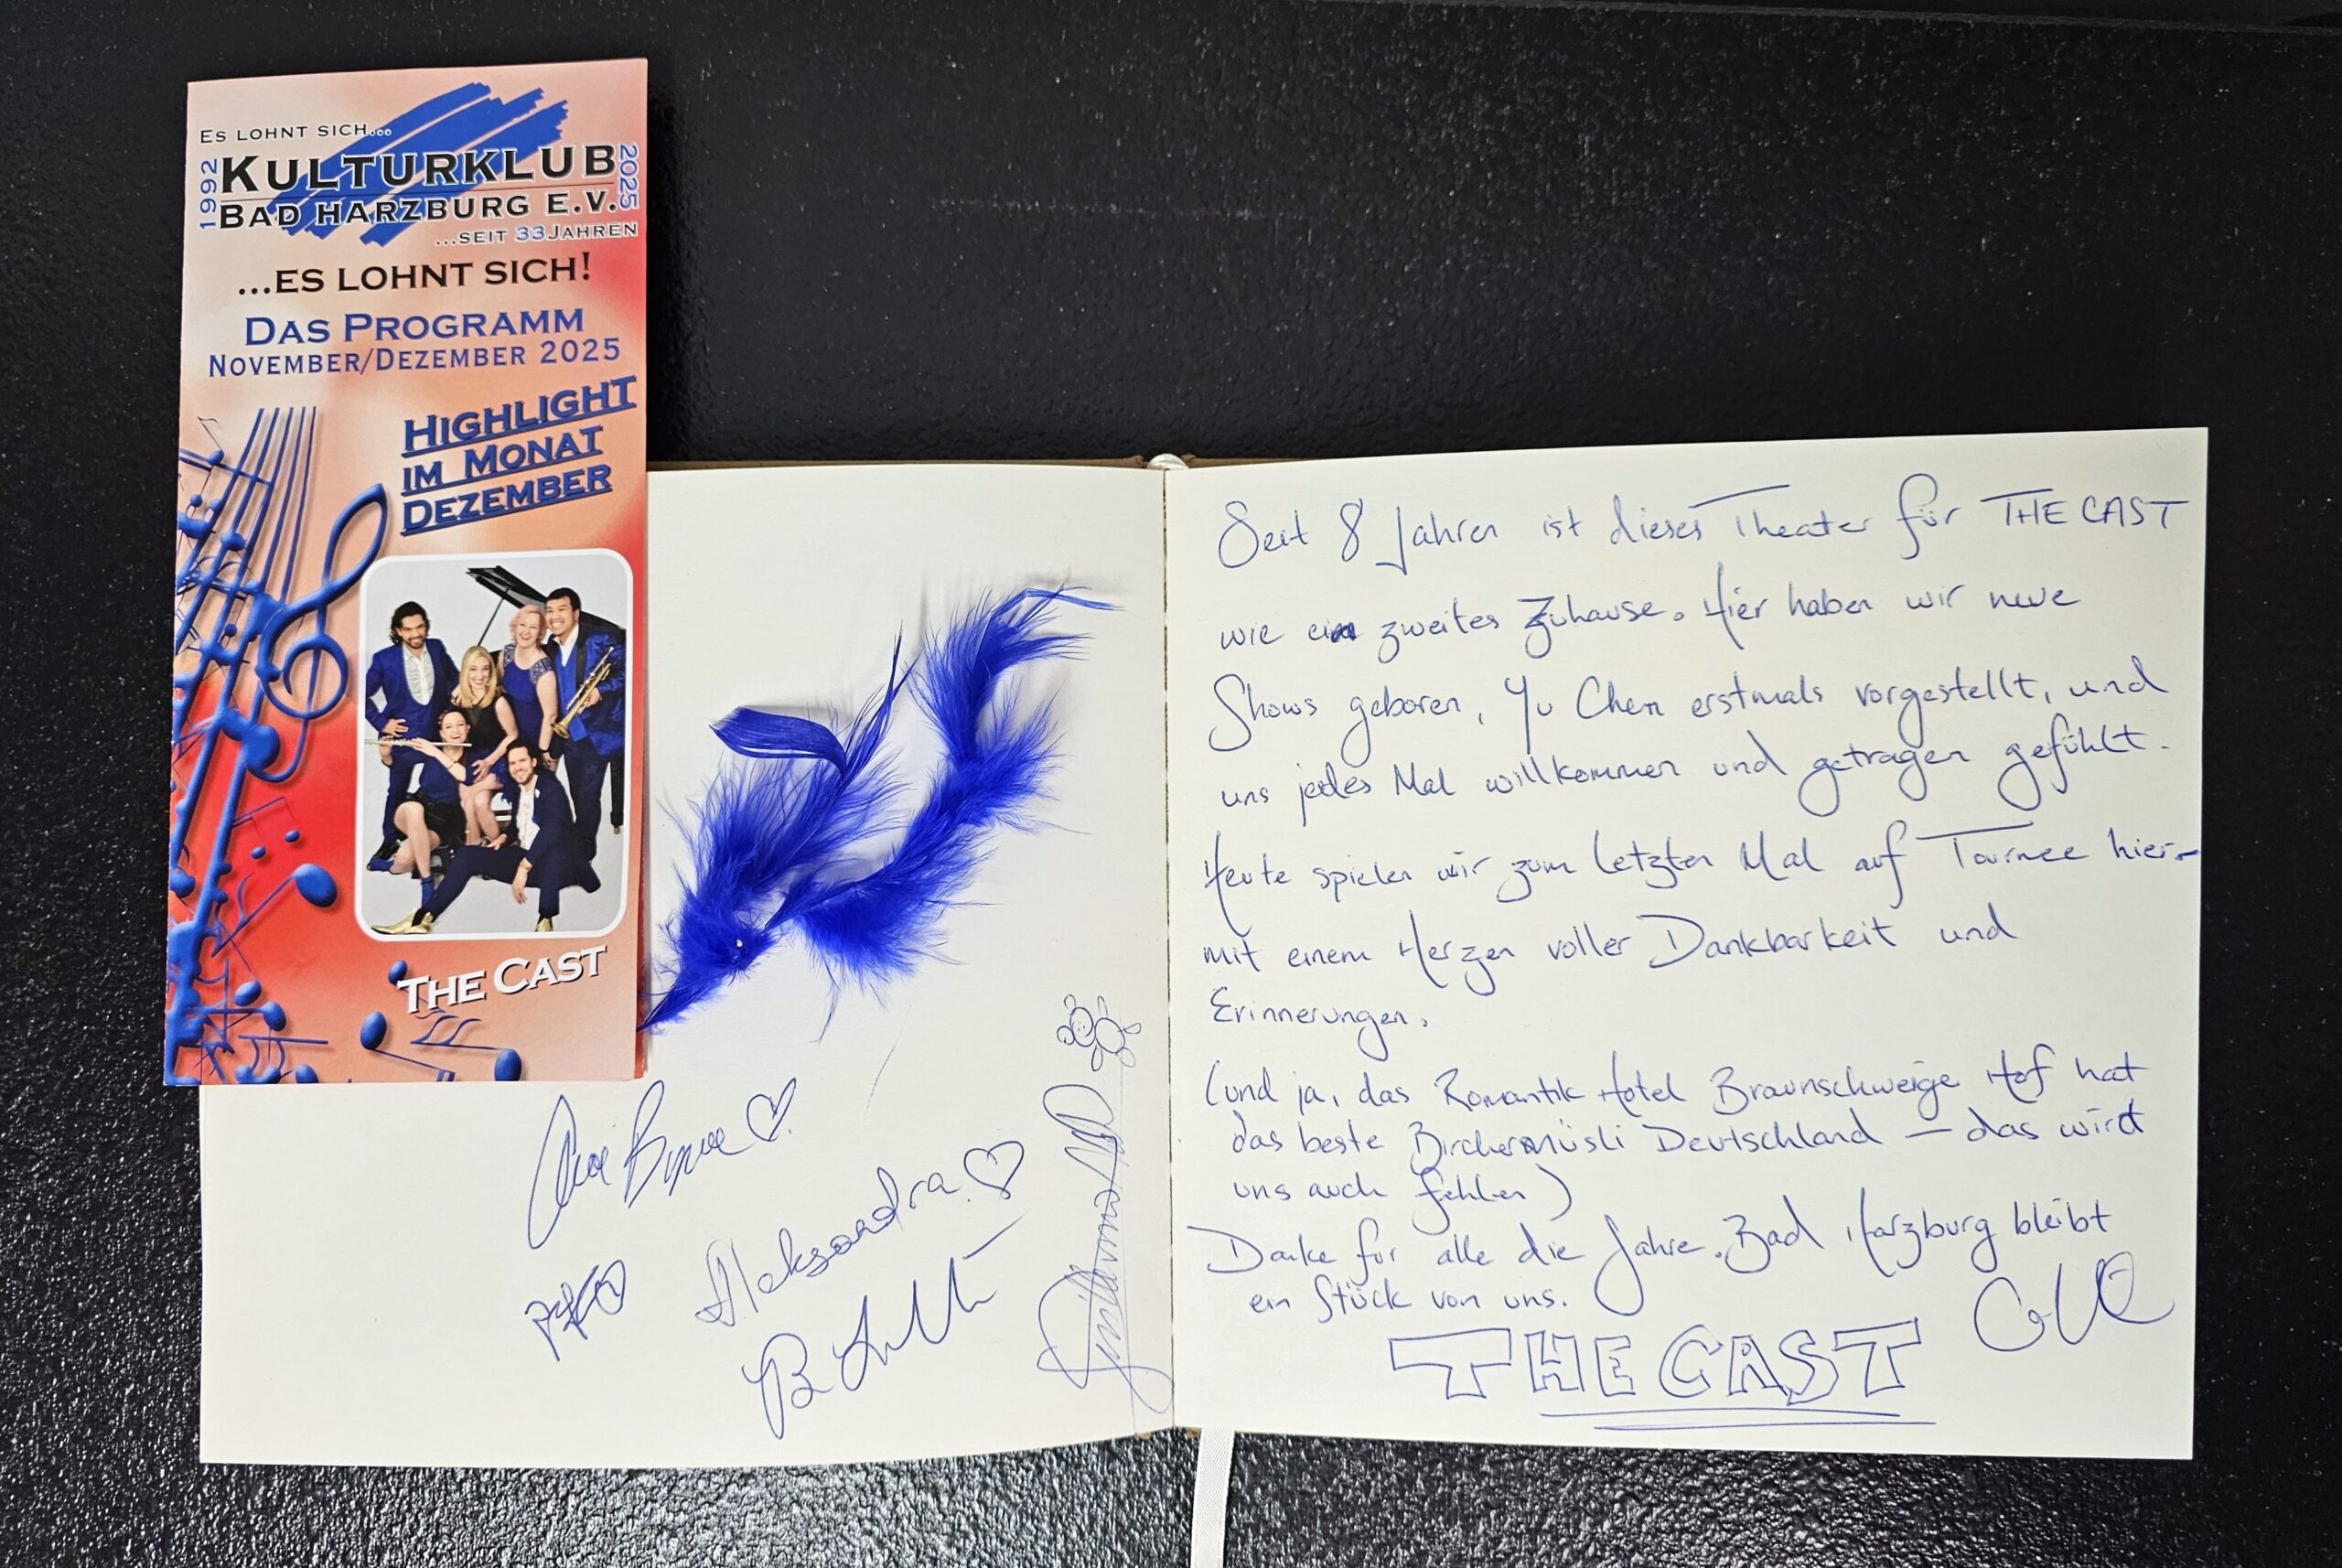 ES LOHNT SICH...
1992
KULTURKLUB
2025
BAD HARZBURG E.V.
...SEIT 33 JAHREN
...ES LOHNT SICH!
DAS PROGRAMM
NOVEMBER/DEZEMBER 2025
HIGHLIGHT
IM MONAT
DEZEMBER
THE CAST
Aleksandra
Guillermo
Seit 8 Jahren ist dieses Theater für THE CAST
wie ein zweites Zuhause. Hier haben wir neue
Shows geboren, Yu Chen erstmals vorgestellt, und
uns jedes Mal willkommen und getragen gefühlt.
Heute spielen wir zum letzten Mal auf Tournee hier-
mit einem Herzen voller Dankbarkeit und
Erinnerungen.
(und ja, das Romantik Hotel Braunschweige Hof hat
das beste Birchermüsli Deutschland – das wird
uns auch fehlen)
Danke für alle die Jahre. Bad Harzburg bleibt
ein Stück von uns.
THE CAST